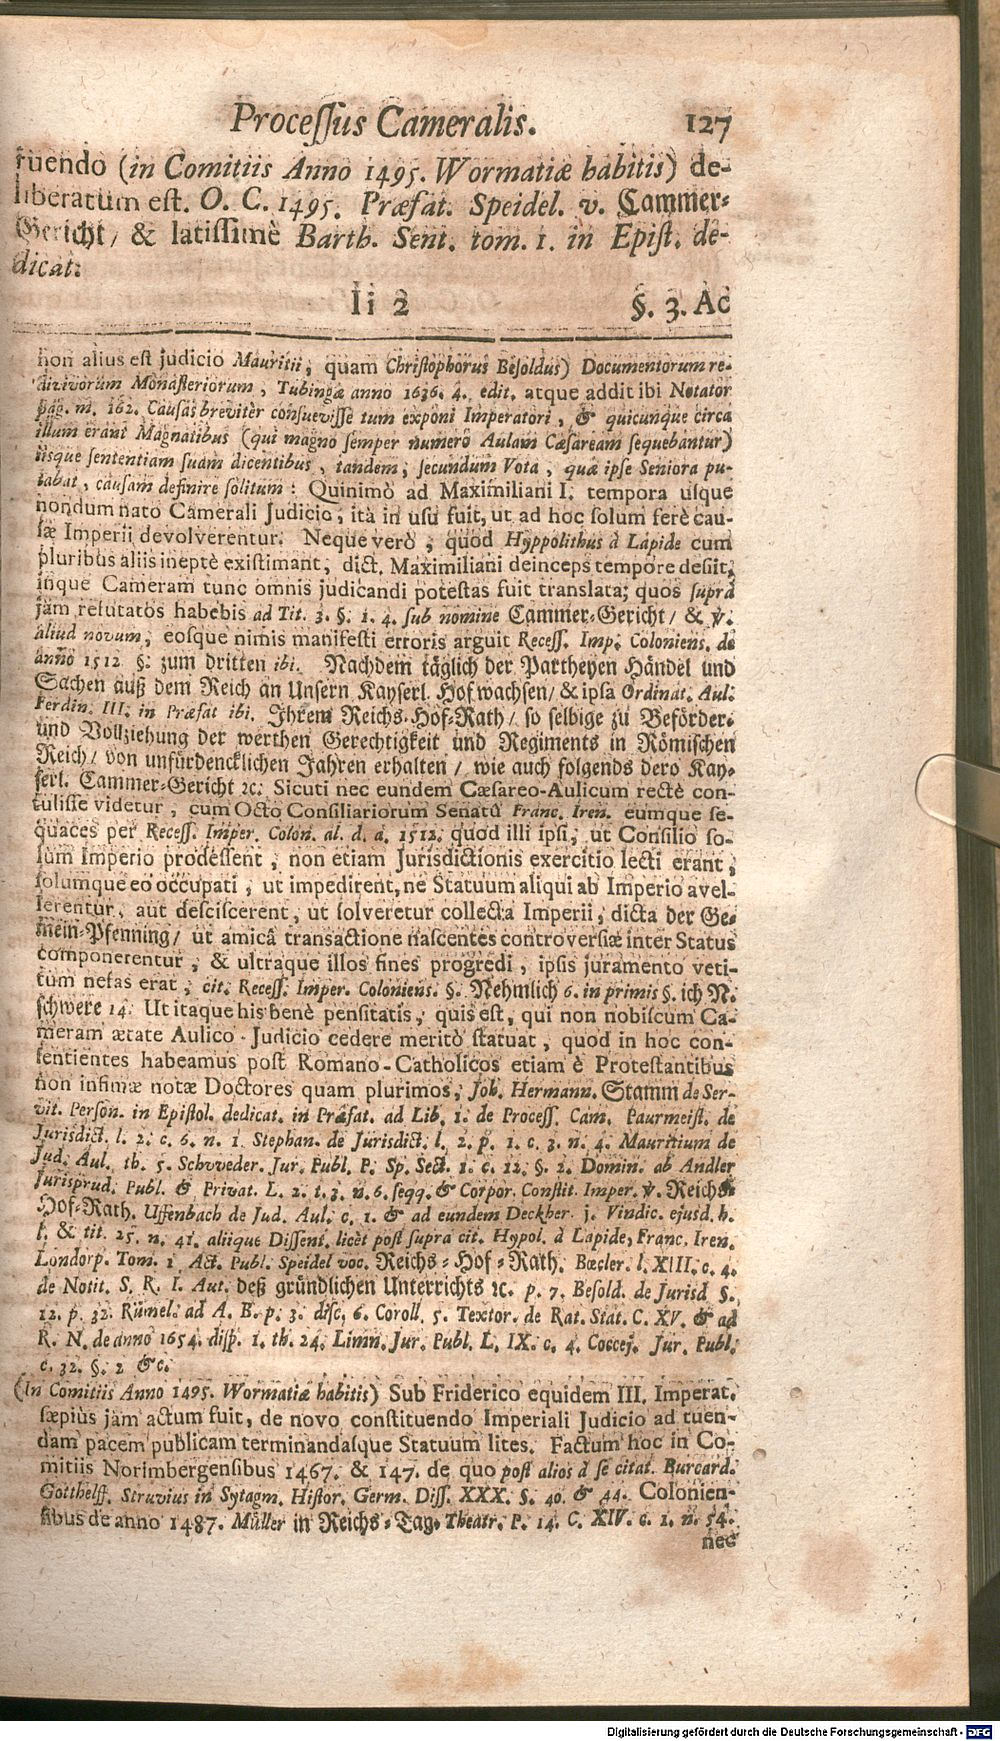 Processus Cameralis. 127
tuendo (in Comitiis Anno 1495. Wormatiæ habitis) de-
liberatum est. O. C. 1495. Præfat. Speidel. v. Cammer-
Gericht/ & latissimè Barth. Sent. tom. 1. in Epist. de-
dicat.
Ii 2 §. 3. Ac
non alius est judicio Mauritii, quam Christophorus Besoldus) Documentorum re-
divivorum Monasteriorum, Tubingæ anno 1636. 4. edit. atque addit ibi Notator
pag. m. 162. Causas breviter consuevisse tum exponi Imperatori, & quicunque circa
illum erant Magnatibus (qui magno semper numero Aulam Cæsaream sequebantur)
iisque sententiam suam dicentibus, tandem, secundum Vota, quæ ipse Seniora pu-
tabat, causam definire solitum: Quinimò ad Maximiliani I. tempora usque
nondum nato Camerali Judicio, ità in usu fuit, ut ad hoc solum ferè cau-
sæ Imperii devolverentur. Neque verò, quod Hyppolithus à Lapide cum
pluribus aliis ineptè existimant, dict. Maximiliani deinceps tempore desiit,
inque Cameram tunc omnis judicandi potestas fuit translata; quos suprà
jam refutatos habebis ad Tit. 3. §. 1. 4. sub nomine Cammer-Gericht/ & v.
aliud novum, eosque nimis manifesti erroris arguit Recess. Imp. Coloniens. de
anno 1512 §. zum dritten ibi. Nachdem täglich der Partheyen Händel und
Sachen auß dem Reich an Unsern Kayserl. Hof wachsen/ & ipsa Ordinat. Aul.
Ferdin. III. in Præfat ibi. Ihrem Reichs-Hof-Rath/ so selbige zu Beförder-
und Vollziehung der werthen Gerechtigkeit und Regiments in Römischen
Reich/ von unfürdencklichen Jahren erhalten/ wie auch folgends dero Kay-
serl. Cammer-Gericht ꝛc. Sicuti nec eundem Cæsareo-Aulicum rectè con-
tulisse videtur, cum Octo Consiliariorum Senatu Franc. Iren. eumque se-
quaces per Recess. Imper. Colon. al. d. a. 1512. quod illi ipsi, ut Consilio so-
lum Imperio prodessent, non etiam Jurisdictionis exercitio lecti erant,
solumque eo occupati, ut impedirent, ne Statuum aliqui ab Imperio avel-
lerentur, aut desciscerent, ut solveretur collecta Imperii, dicta der Ge-
mein-Pfenning/ ut amicâ transactione nascentes controversiæ inter Status
componerentur, & ultraque illos fines progredi, ipsis juramento veti-
tum nefas erat, cit. Recess. Imper. Coloniens. §. Nehmlich 6. in primis §. ich N.
schwere 14. Ut itaque his benè pensitatis, quis est, qui non nobiscum Ca-
meram ætate Aulico-Judicio cedere meritò statuat, quod in hoc con-
sentientes habeamus post Romano-Catholicos etiam è Protestantibus
non infimæ notæ Doctores quam plurimos, Joh. Hermann. Stamm de Ser-
vit. Person. in Epistol. dedicat. in Præfat. ad Lib. 1. de Process. Cam. Paurmeist. de
Jurisdict. l. 2. c. 6. n. 1. Stephan. de Jurisdict. l. 2. p. 1. c. 3. n. 4. Mauritium de
Jud. Aul. th. 5. Schvveder. Jur. Publ. P. Sp. Sect. 1. c. 12. §. 2. Domin. ab Andler
Jurisprud. Publ. & Privat. L. 2. t. 3. n. 6. seqq. & Corpor. Constit. Imper. v. Reichs-
Hof-Rath. Uffenbach de Jud. Aul. c. 1. & ad eundem Deckher. j. Vindic. ejusd. h.
l. & tit. 25. n. 41. aliique Dissent. licèt post supra cit. Hypol. à Lapide, Franc. Iren.
Londorp. Tom. 1. Act. Publ. Speidel voc. Reichs-Hof-Rath. Bœcler. l. XIII. c. 4.
de Notit. S. R. I. Aut. deß gründlichen Unterrichts ꝛc. p. 7. Besold. de Jurisd §.
12. p. 32. Rümel. ad A. B. p. 3. disc. 6. Coroll. 5. Textor. de Rat. Stat. C. XV. & ad
R. N. de anno 1654. disp. 1. th. 24. Limn. Jur. Publ. L. IX. c. 4. Coccej. Jur. Publ.
c. 32. §. 2 &c.
(In Comitiis Anno 1495. Wormatiæ habitis) Sub Friderico equidem III. Imperat.
sæpius jam actum fuit, de novo constituendo Imperiali Judicio ad tuen-
dam pacem publicam terminandasque Statuum lites. Factum hoc in Co-
mitiis Norimbergensibus 1467. & 147. de quo post alios à se citat. Burcard.
Gotthelff. Struvius in Sytagm. Histor. Germ. Diss. XXX. §. 40. & 44. Colonien-
sibus de anno 1487. Müller in Reichs-Tag. Theatr. P. 14. C. XIV. c. 1. n. 54.
nec
Digitalisierung gefördert durch die Deutsche Forschungsgemeinschaft - DFG